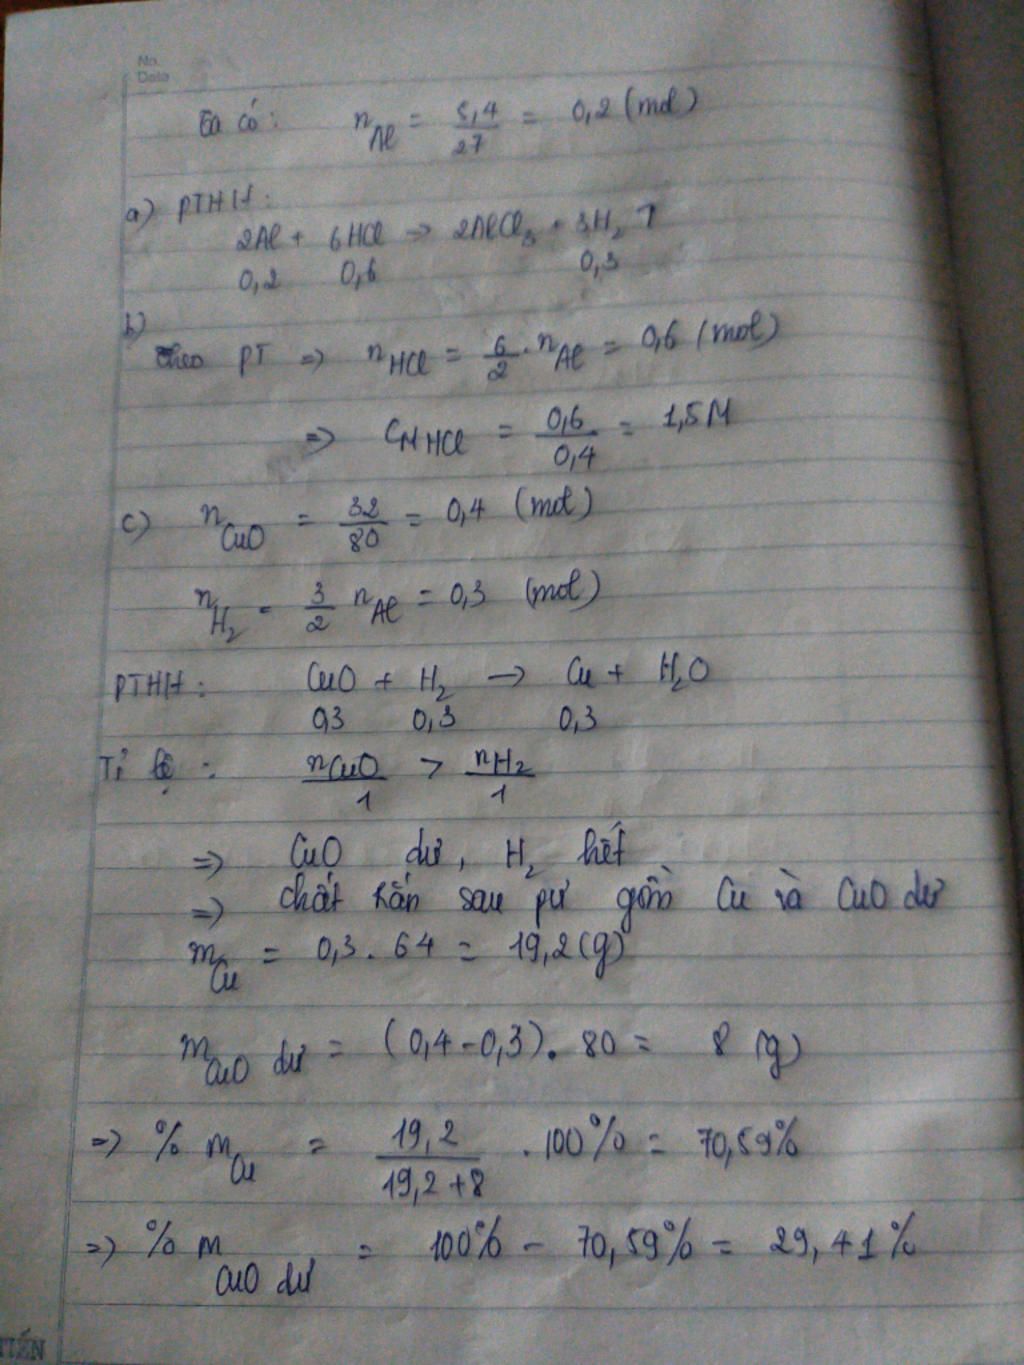 No.
Date
Ta có: n Al = 5,4/27 = 0,2 (mol)
a) PTHH:
2Al + 6HCl → 2AlCl₃ + 3H₂ ↑
0,2 0,6 0,3
b)
Theo PT => n HCl = 6/2 . n Al = 0,6 (mol)
=> CM HCl = 0,6/0,4 = 1,5M
c) n CuO = 32/80 = 0,4 (mol)
n H₂ = 3/2 n Al = 0,3 (mol)
PTHH: CuO + H₂ → Cu + H₂O
0,3 0,3 0,3
Tỉ lệ: nCuO/1 > nH₂/1
=> CuO dư, H₂ hết
=> chất rắn sau pư gồm Cu và CuO dư
m Cu = 0,3 . 64 = 19,2 (g)
m CuO dư = (0,4 - 0,3) . 80 = 8 (g)
=> % m Cu = 19,2/19,2+8 . 100% = 70,59%
=> % m CuO dư = 100% - 70,59% = 29,41%
TIẾN